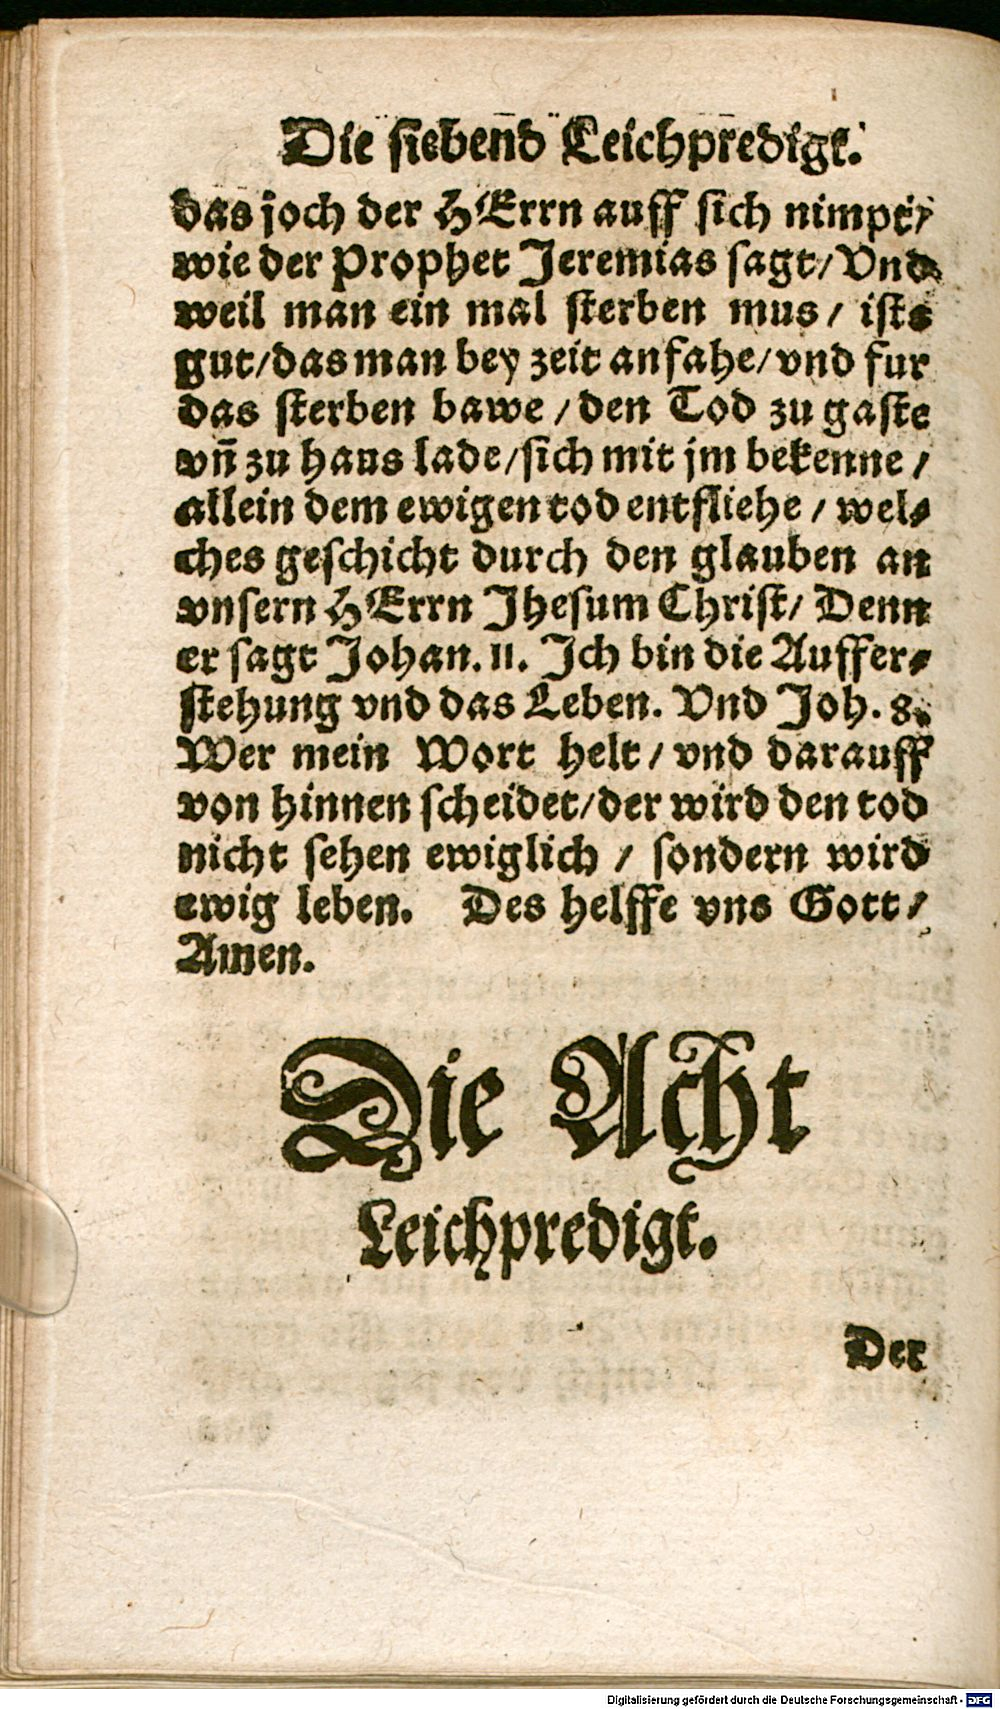 Die siebend Leichpredigt.
das joch der HErrn auff sich nimpt/
wie der Prophet Jeremias sagt/ Vnd
weil man ein mal sterben mus/ ists
gut/ das man bey zeit anfahe/ vnd fur
das sterben bawe/ den Tod zu gaste
vn̄ zu haus lade/ sich mit jm bekenne/
allein dem ewigen tod entfliehe/ wel⸗
ches geschicht durch den glauben an
vnsern HErrn Jhesum Christ/ Denn
er sagt Johan. 11. Ich bin die Auffer⸗
stehung vnd das Leben. Vnd Joh. 8.
Wer mein Wort helt/ vnd darauff
von hinnen scheidet/ der wird den tod
nicht sehen ewiglich/ sondern wird
ewig leben. Des helffe vns Gott/
Amen.
Die Acht
Leichpredigt.
Der
Digitalisierung gefördert durch die Deutsche Forschungsgemeinschaft - DFG